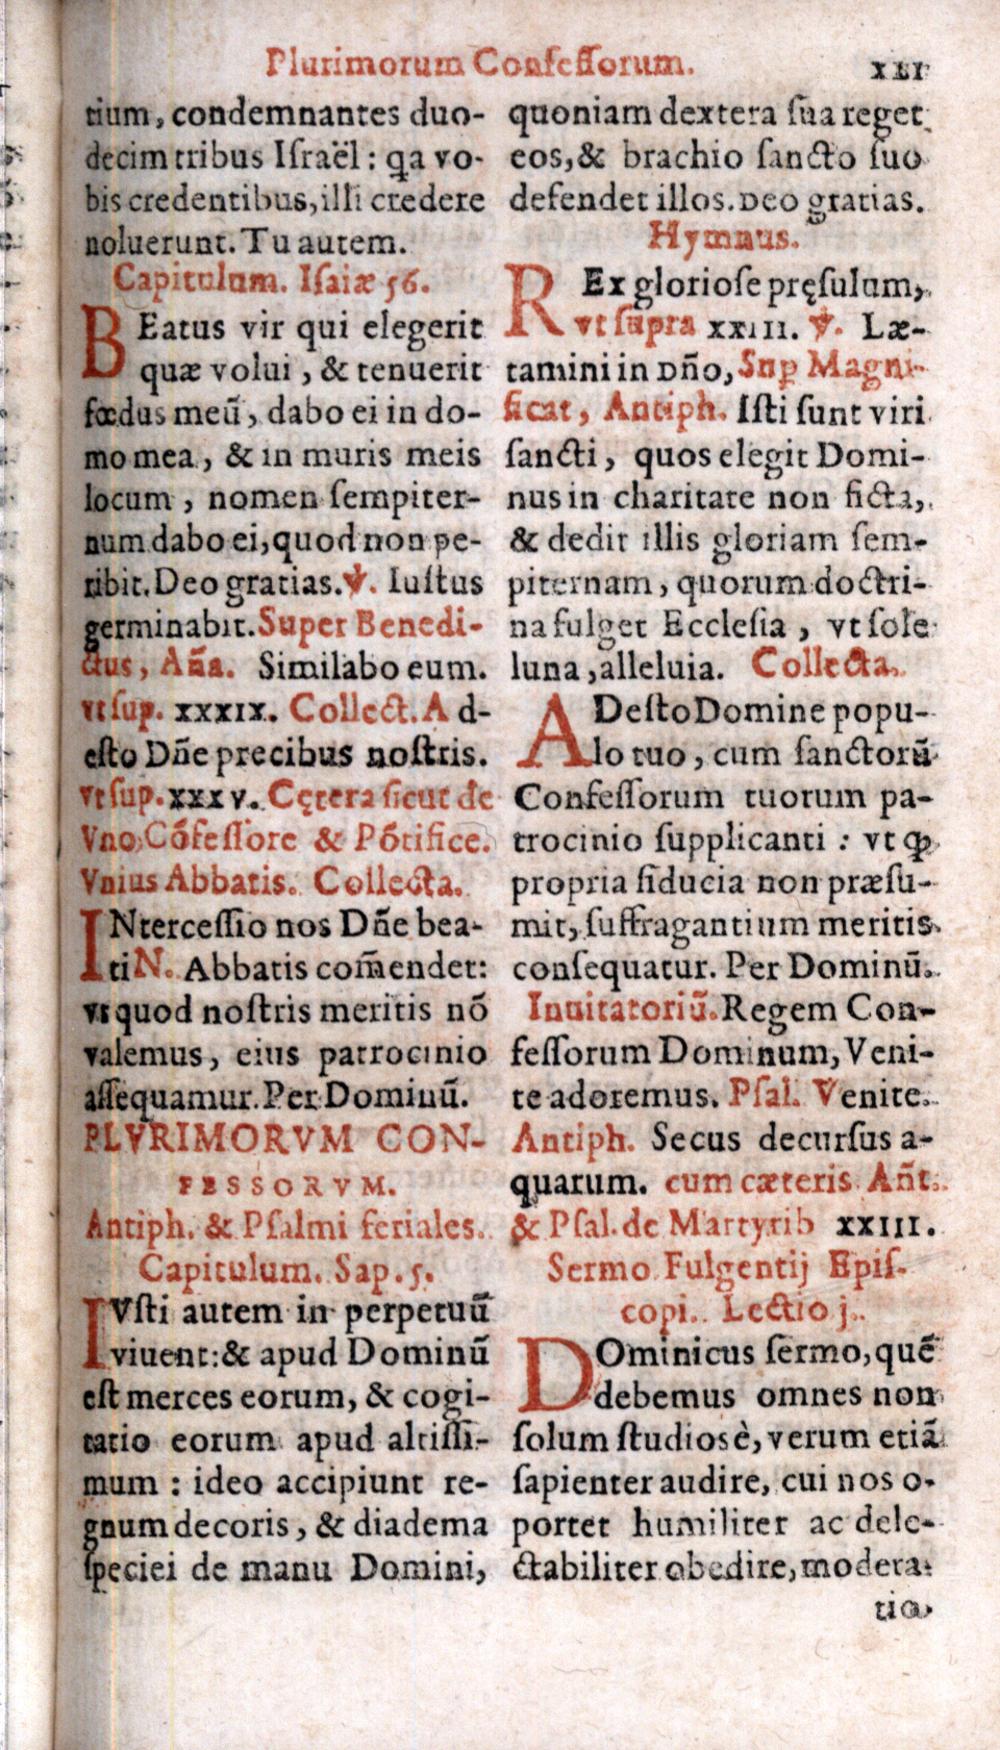 Plurimorum Confeſſorum. XLI
tium, condemnantes duo-
decim tribus Iſraël: qa vo-
bis credentibus, illi credere
noluerunt. Tu autem.
Capitulum. Iſaiæ 56.
BEatus vir qui elegerit
quæ volui, & tenuerit
fœdus meũ, dabo ei in do-
mo mea, & in muris meis
locum, nomen ſempiter-
num dabo ei, quod non pe-
ribit. Deo gratias. ℣. Iuſtus
germinabit. Super Benedi-
ctus, Aña. Similabo eum.
vt ſup. XXXIX. Collect. Ad-
eſto Dñe precibus noſtris.
vt ſup. XXXV. Cętera ſicut de
Vno Cõfeſſore & Põtifice.
Vnius Abbatis. Collecta.
INterceſſio nos Dñe bea-
ti N. Abbatis com̃endet:
vt quod noſtris meritis nõ
valemus, eius patrocinio
aſſequamur. Per Dominũ.
PLVRIMORVM CON-
FESSORVM.
Antiph. & Pſalmi feriales.
Capitulum. Sap. 5.
IVſti autem in perpetuũ
viuent: & apud Dominũ
eſt merces eorum, & cogi-
tatio eorum apud altiſſi-
mum: ideo accipiunt re-
gnum decoris, & diadema
ſpeciei de manu Domini,
quoniam dextera ſua reget
eos, & brachio ſancto ſuo
defendet illos. Deo gratias.
Hymnus.
REx glorioſe pręſulum,
vt ſupra XXIII. ℣. Læ-
tamini in Dño, Sup̱ Magni-
ficat, Antiph. Iſti ſunt viri
ſancti, quos elegit Domi-
nus in charitate non ficta,
& dedit illis gloriam ſem-
piternam, quorum doctri-
na fulget Eccleſia, vt ſole
luna, alleluia. Collecta.
ADeſto Domine popu-
lo tuo, cum ſanctorũ
Confeſſorum tuorum pa-
trocinio ſupplicanti: vt ꝙ
propria fiducia non præſu-
mit, ſuffragantium meritis
conſequatur. Per Dominũ.
Inuitatoriũ. Regem Con-
feſſorum Dominum, Veni-
te adoremus. Pſal. Venite.
Antiph. Secus decurſus a-
quarum. cum cæteris Añt.
& Pſal. de Martyrib XXIII.
Sermo Fulgentij Epiſ-
copi. Lectio j.
DOminicus ſermo, quẽ
debemus omnes non
ſolum ſtudiosè, verum etiã
ſapienter audire, cui nos o-
portet humiliter ac dele-
ctabiliter obedire, modera-
tio